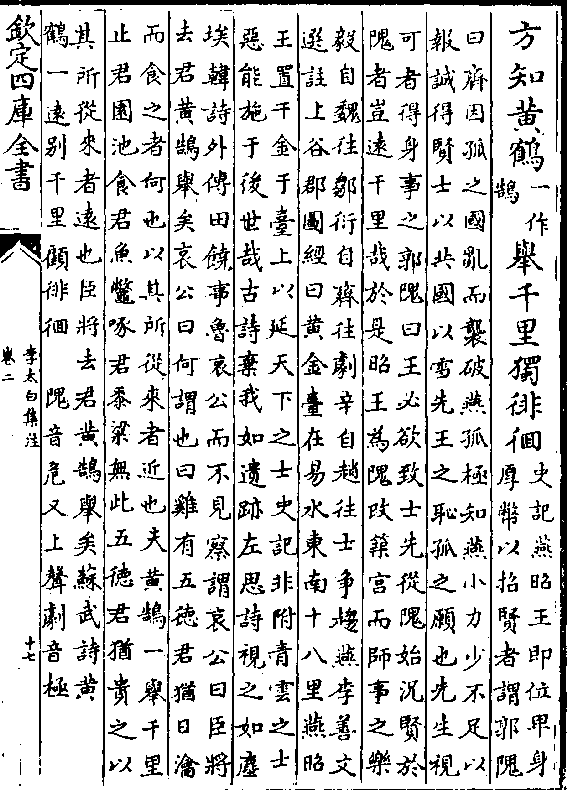 方知黃鶴一作鵠舉千里獨徘徊史記燕昭王即位卑身
厚幣以招賢者謂郭隗
曰齊因孤之國亂而襲破燕孤極知燕小力少不足以
報誠得賢士以共國以雪先王之恥孤之願也先生視
可者得身事之郭隗曰王必欲致士先從隗始況賢於
隗者豈遠千里哉於是昭王為隗改築宮而師事之樂
毅自魏往鄒衍自齊往劇辛自趙往士爭趨燕李善文
選註上谷郡圖經曰黃金臺在易水東南十八里燕昭
王置千金于臺上以延天下之士史記非附青雲之士
惡能施于後世哉古詩棄我如遺跡左思詩視之如塵
埃韓詩外傳田饒事魯哀公而不見察謂哀公曰臣將
去君黃鵠舉矣哀公曰何謂也曰雞有五徳君猶日瀹
而食之者何也以其所從來者近也夫黃鵠一舉千里
止君園池食君魚鼈啄君黍梁無此五徳君猶貴之以
其所從來者遠也臣將去君黃鵠舉矣蘇武詩黃
鶴一遠别千里顧徘徊 隗音危又上聲劇音極
欽定四庫全書
李太白集注
卷二
十七